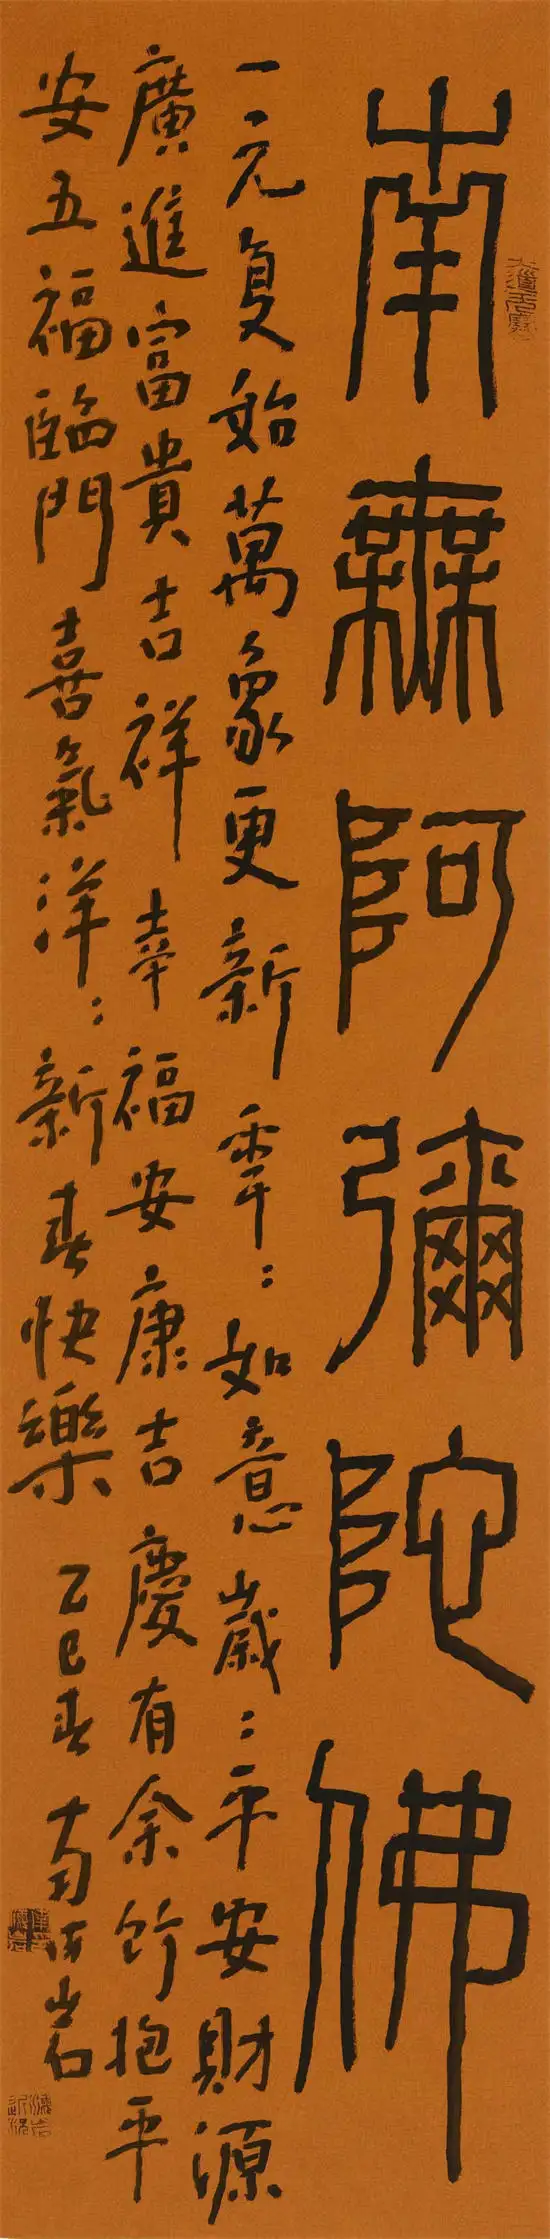 南無阿彌陀佛
一元复始萬象更新年:如意歲:平安財源
廣進富貴吉祥幸福安康吉慶有余竹抱平
安五福臨門喜氣洋:新春快樂乙巳春